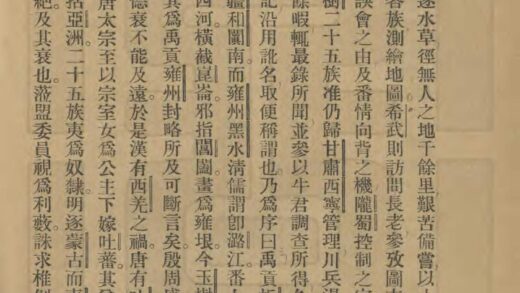 逐水草徑無人之地千餘里艱苦備嘗以
各族測繪地圖希武則訪問長老參攷圖
誤會之由及番情向背之機隴蜀控制之
樹二十五族准仍歸甘肅西寧管理川兵
餘暇輒最錄所聞並參以牛君調查所得
記沿用訛名取便稱謂也乃爲序曰禹貢
疆和闐南而雍州黑水清儒謂卽潞江番
四河橫截崑崙邪指闐闐畫爲雍垠今玉樹
其爲禹貢雍州封略所及可斷言矣殷周
德衰不能及遠於是漢有西羌之禍唐有
唐太宗至以宗室女爲公主下嫁吐蕃其
括亞洲二十五族夷爲奴隸明逐蒙古而
絕及其衰也涖盟委員視爲利藪誅求椎